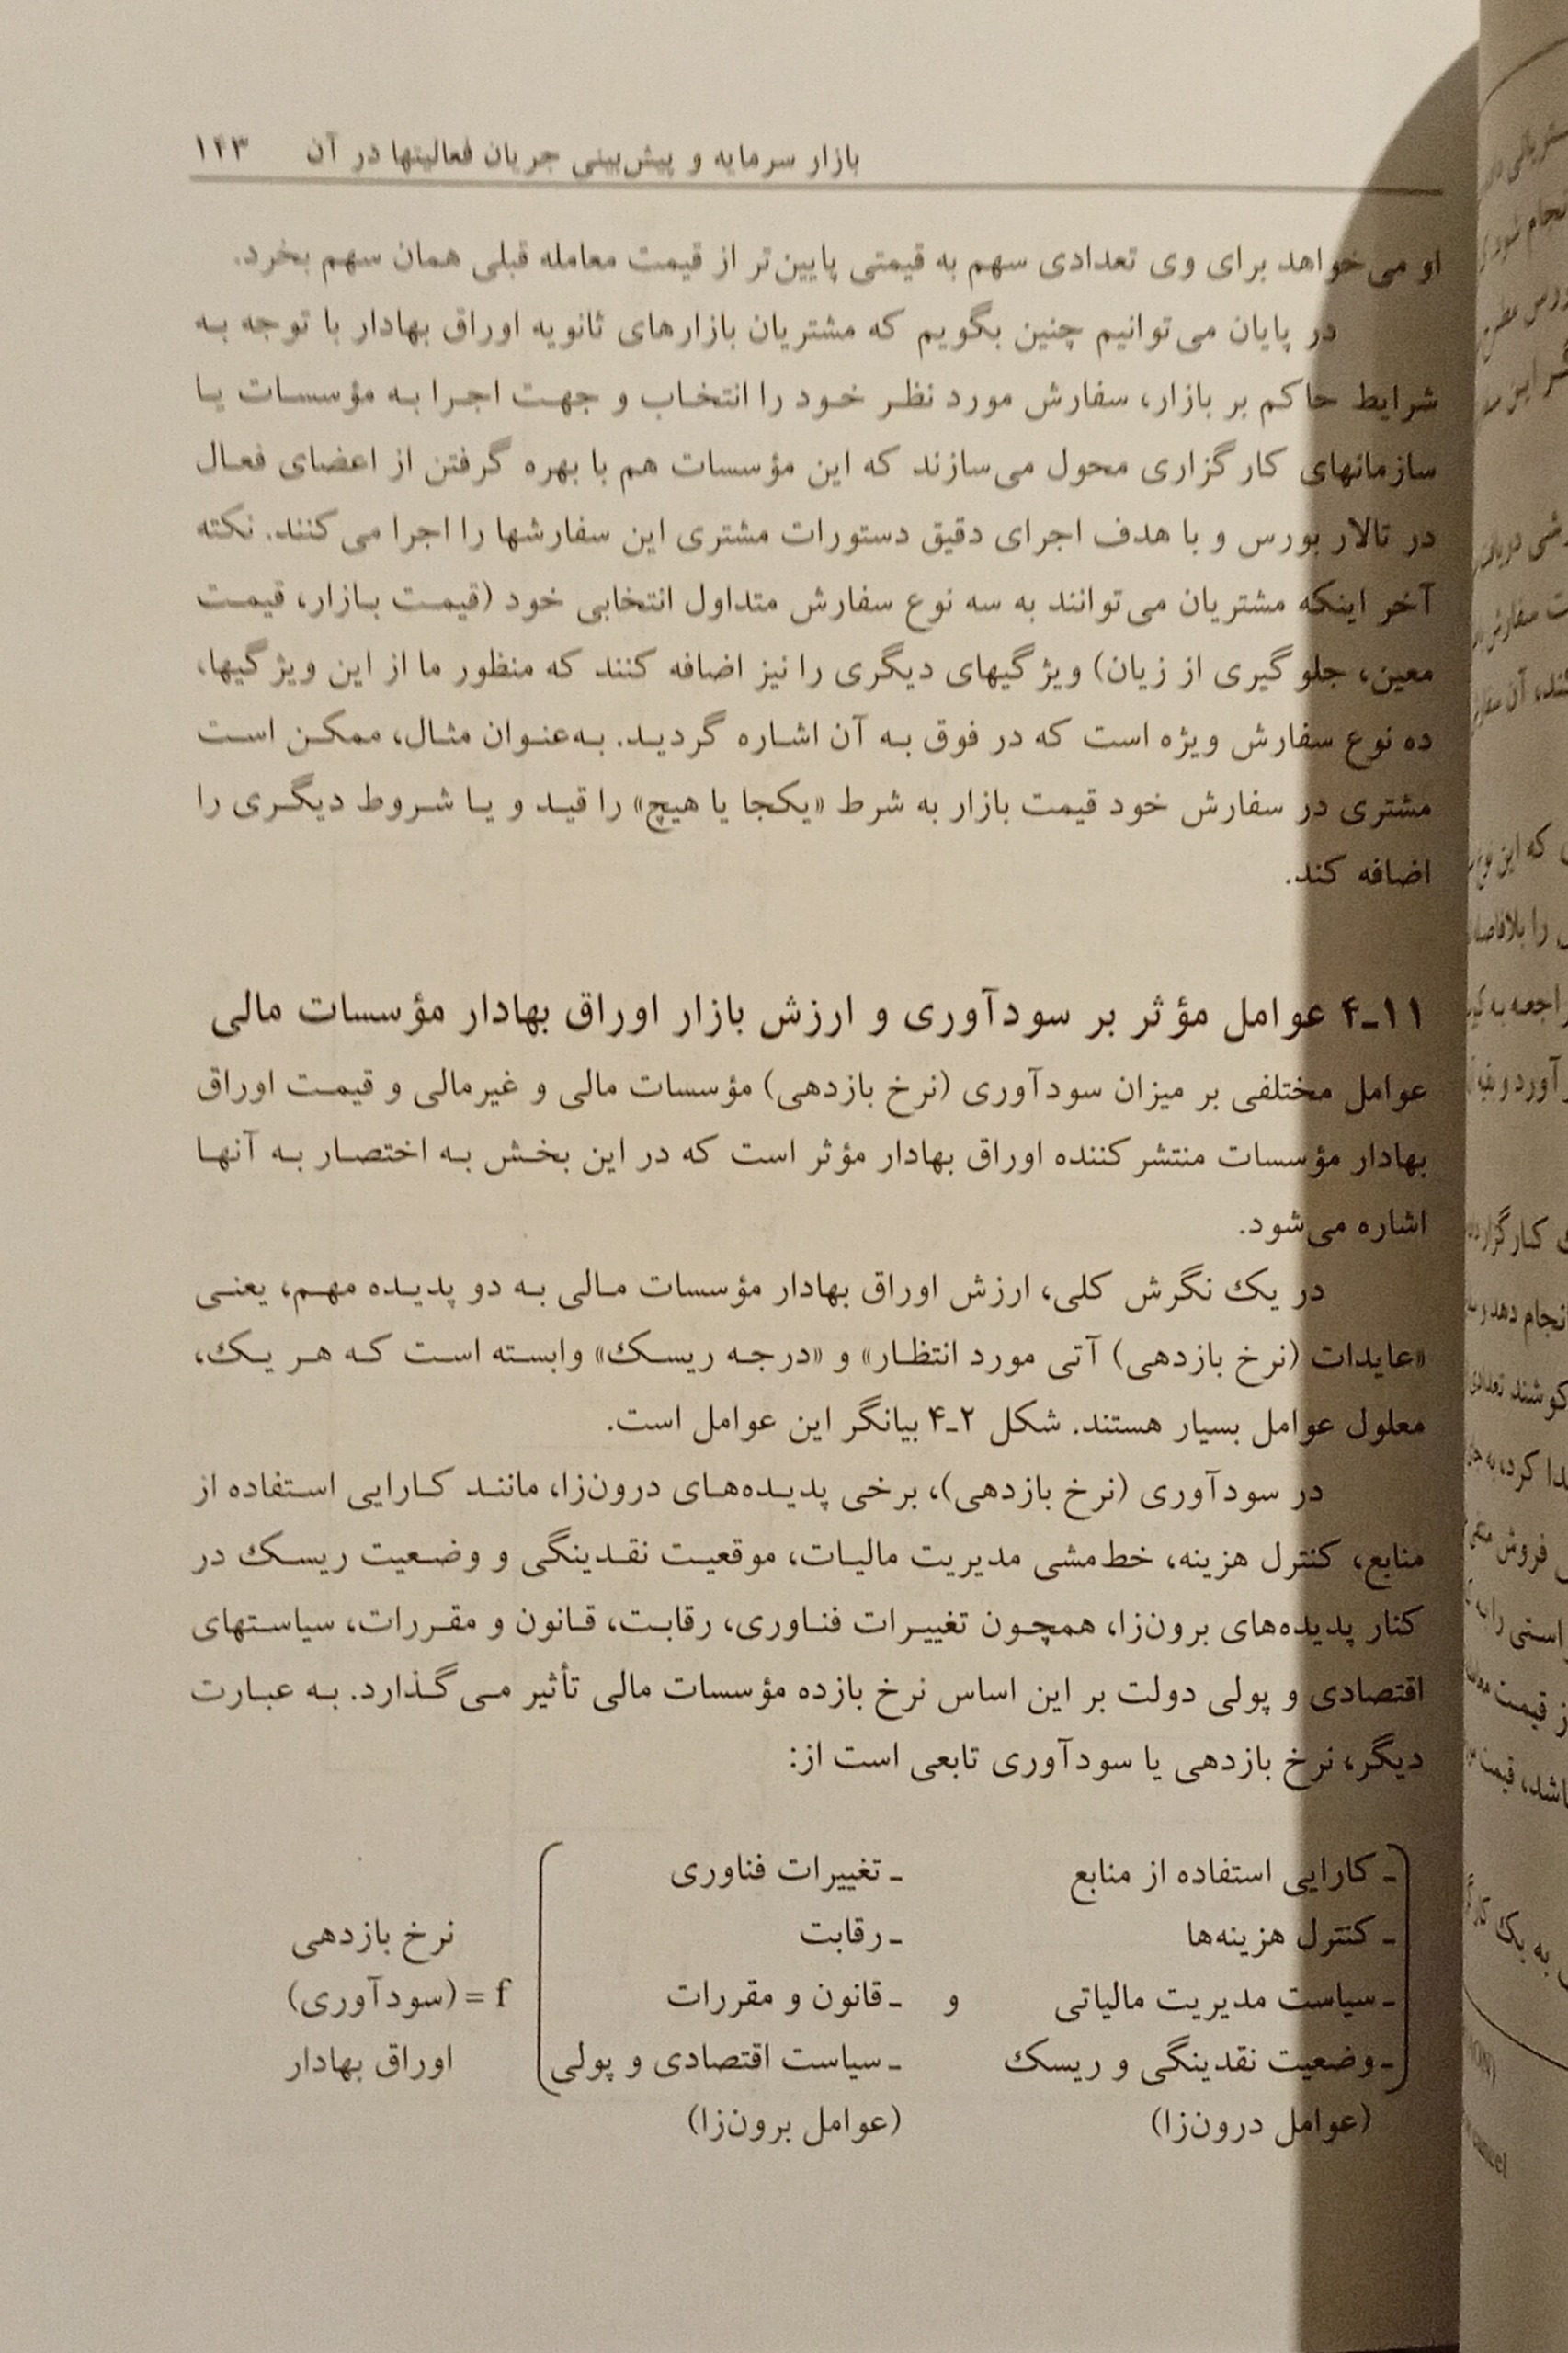 بازار سرمایه و پیش‌بینی جریان فعالیتها در آن ۱۴۳
او می‌خواهد برای وی تعدادی سهم به قیمتی پایین‌تر از قیمت معامله قبلی همان سهم بخرد.
در پایان می‌توانیم چنین بگویم که مشتریان بازارهای ثانویه اوراق بهادار با توجه به
شرایط حاکم بر بازار، سفارش مورد نظر خود را انتخاب و جهت اجرا به مؤسسات یا
سازمانهای کارگزاری محول می‌سازند که این مؤسسات هم با بهره گرفتن از اعضای فعال
در تالار بورس و با هدف اجرای دقیق دستورات مشتری این سفارشها را اجرا می‌کنند. نکته
آخر اینکه مشتریان می‌توانند به سه نوع سفارش متداول انتخابی خود (قیمت بازار، قیمت
معین، جلوگیری از زیان) ویژگیهای دیگری را نیز اضافه کنند که منظور ما از این ویژگیها،
ده نوع سفارش ویژه است که در فوق به آن اشاره گردید. به‌عنوان مثال، ممکن است
مشتری در سفارش خود قیمت بازار به شرط «یکجا یا هیچ» را قید و یا شروط دیگری را
اضافه کند.
۱۱ـ۴ عوامل مؤثر بر سودآوری و ارزش بازار اوراق بهادار مؤسسات مالی
عوامل مختلفی بر میزان سودآوری (نرخ بازدهی) مؤسسات مالی و غیرمالی و قیمت اوراق
بهادار مؤسسات منتشر کننده اوراق بهادار مؤثر است که در این بخش به اختصار به آنها
اشاره می‌شود.
در یک نگرش کلی، ارزش اوراق بهادار مؤسسات مالی به دو پدیده مهم، یعنی
«عایدات (نرخ بازدهی) آتی مورد انتظار» و «درجه ریسک» وابسته است که هر یک،
معلول عوامل بسیار هستند. شکل ۲ـ۴ بیانگر این عوامل است.
در سودآوری (نرخ بازدهی)، برخی پدیده‌های درون‌زا، مانند کارایی استفاده از
منابع، کنترل هزینه، خط‌مشی مدیریت مالیات، موقعیت نقدینگی و وضعیت ریسک در
کنار پدیده‌های برون‌زا، همچون تغییرات فناوری، رقابت، قانون و مقررات، سیاستهای
اقتصادی و پولی دولت بر این اساس نرخ بازده مؤسسات مالی تأثیر می‌گذارد. به عبارت
دیگر، نرخ بازدهی یا سودآوری تابعی است از:
ـ کارایی استفاده از منابع ـ تغییرات فناوری
ـ کنترل هزینه‌ها ـ رقابت نرخ بازدهی
ـ سیاست مدیریت مالیاتی و ـ قانون و مقررات f = (سودآوری)
ـ وضعیت نقدینگی و ریسک ـ سیاست اقتصادی و پولی اوراق بهادار
(عوامل درون‌زا) (عوامل برون‌زا)